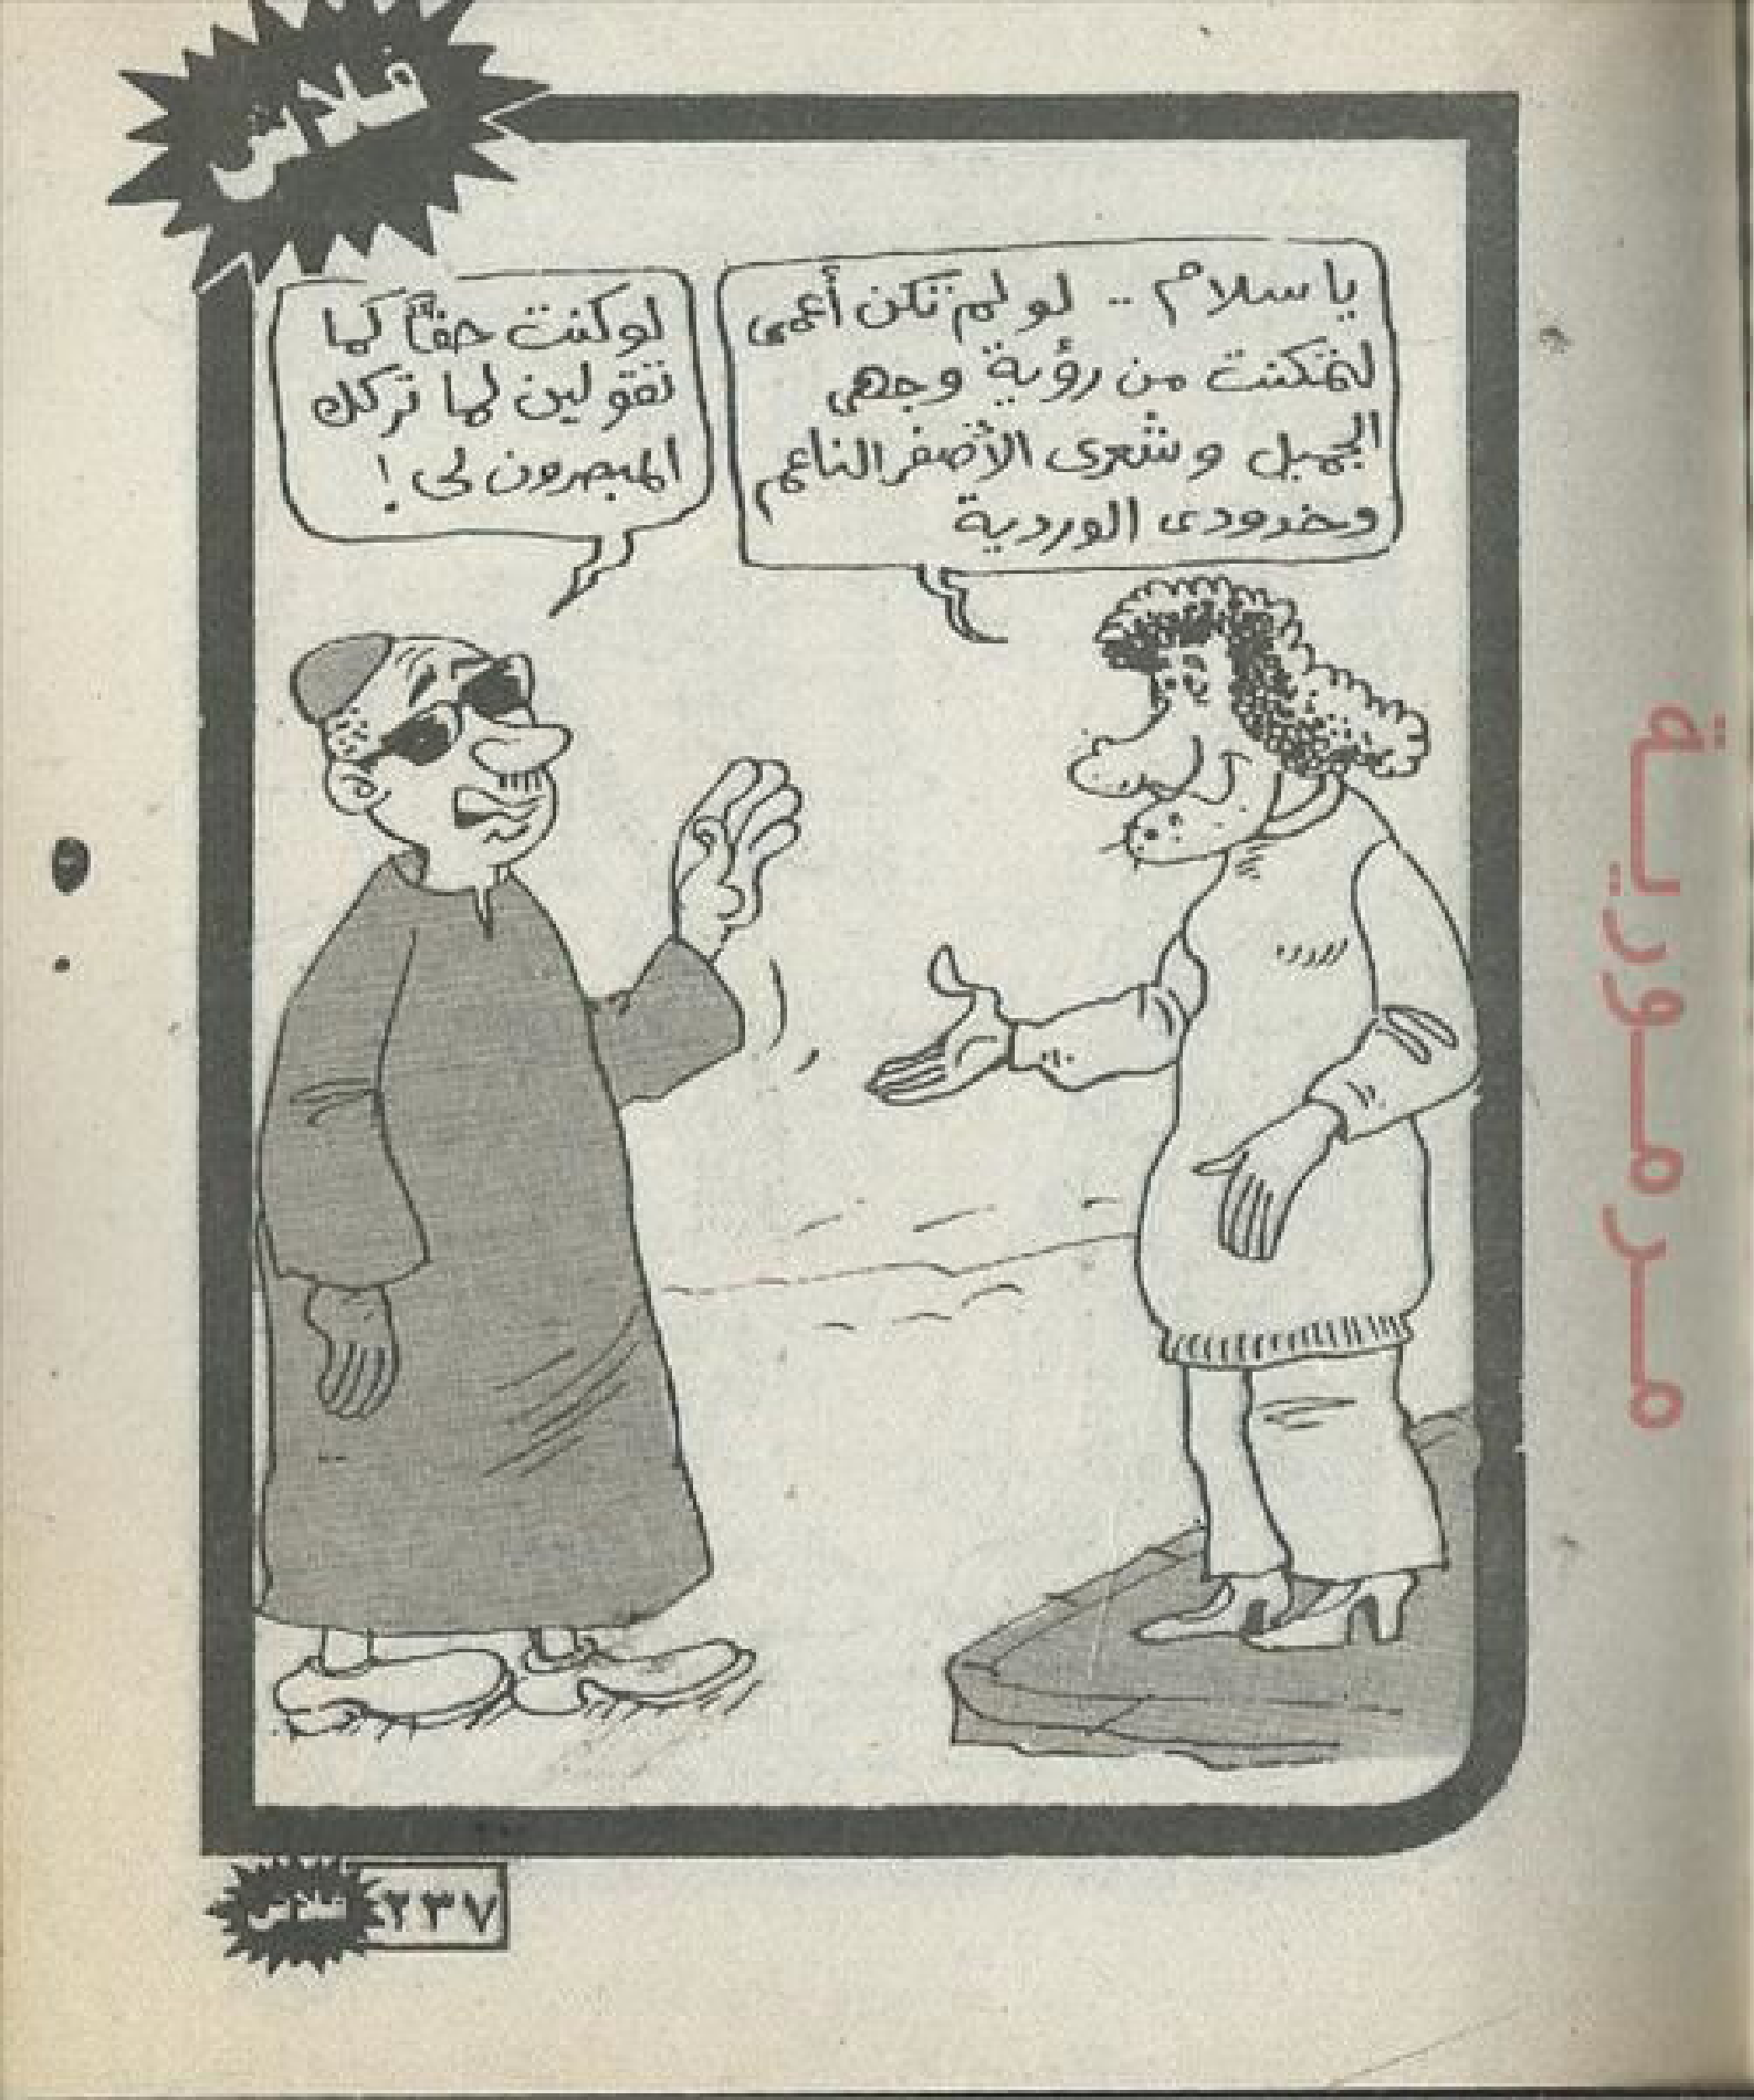 فلاش
يا سلام .. لو لم تكن أعمى
لتمكنت من رؤية وجهى
الجميل وشعرى الأصفر الناعم
وخدودى الوردية
لو كنت حقاً كما
تقولين لما تركك
المبصرون لى !
فلاش ٢٣٧
مرمورية